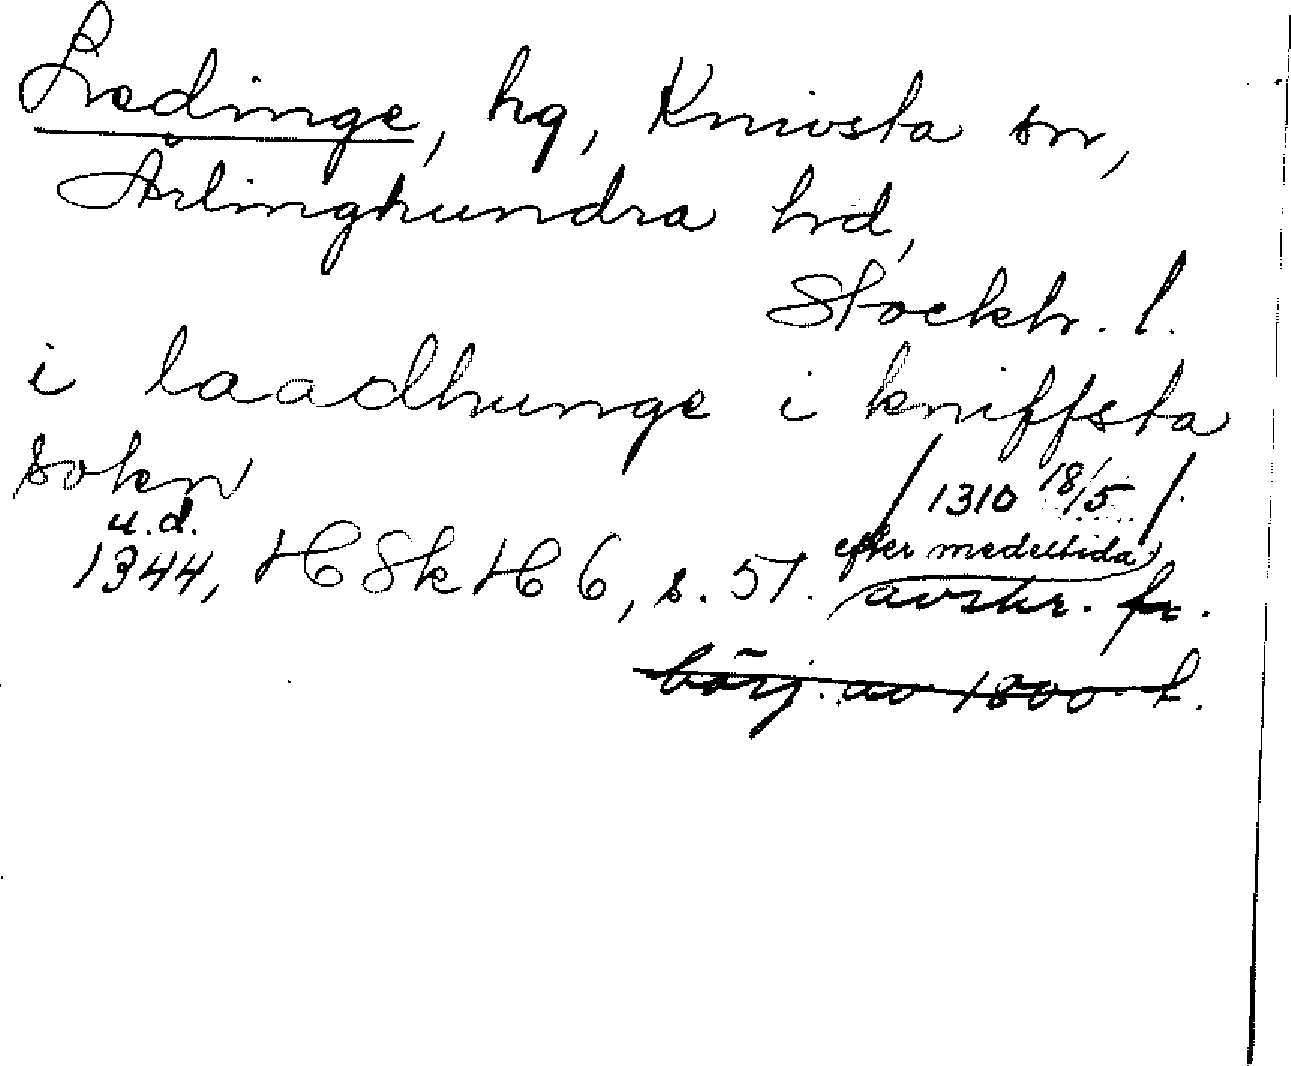 Ledinge, hg, Knivsta sn,
Ärlinghundra hd,
Stockh. l.
i laadhunge i kniffsta
sokn
/ 1310 18/5 /.
u.d.
1344, HSkH 6, s. 57. efter medeltida
avskr. fr.
börj. av 1800-t.